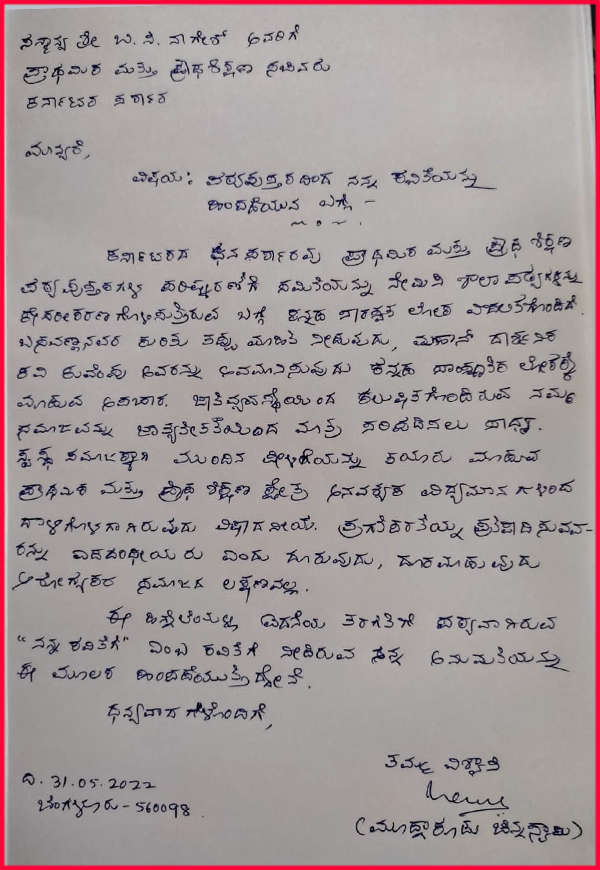 ಸನ್ಮಾನ್ಯ ಶ್ರೀ ಬಿ.ಸಿ. ನಾಗೇಶ್ ಅವರಿಗೆ
ಪ್ರಾಥಮಿಕ ಮತ್ತು ಪ್ರೌಢಶಿಕ್ಷಣ ಸಚಿವರು
ಕರ್ನಾಟಕ ಸರ್ಕಾರ
ಮಾನ್ಯರೆ,
ವಿಷಯ: ಪಠ್ಯಪುಸ್ತಕದಿಂದ ನನ್ನ ಕವಿತೆಯನ್ನು
ಹಿಂಪಡೆಯುವ ಬಗ್ಗೆ -
ಕರ್ನಾಟಕದ ಘನಸರ್ಕಾರವು ಪ್ರಾಥಮಿಕ ಮತ್ತು ಪ್ರೌಢ ಶಿಕ್ಷಣ
ಪಠ್ಯಪುಸ್ತಕಗಳ ಪರಿಷ್ಕರಣೆಗೆ ಸಮಿತಿಯನ್ನು ನೇಮಿಸಿ ಶಾಲಾ ಪಠ್ಯಗಳನ್ನು
ಕೇಸರೀಕರಣಗೊಳಿಸುತ್ತಿರುವ ಬಗ್ಗೆ ಕನ್ನಡ ಸಾರಸ್ವತ ಲೋಕ ವಿಚಲಿತಗೊಂಡಿದೆ.
ಬಸವಣ್ಣನವರ ಕುರಿತು ತಪ್ಪು ಮಾಹಿತಿ ನೀಡುವುದು, ಮಹಾನ್ ದಾರ್ಶನಿಕ
ಕವಿ ಕುವೆಂಪು ಅವರನ್ನು ಅವಮಾನಿಸುವುದು ಕನ್ನಡ ಸಾಂಸ್ಕೃತಿಕ ಲೋಕಕ್ಕೆ
ಮಾಡುವ ಅಪಚಾರ. ಜಾತಿವ್ಯವಸ್ಥೆಯಿಂದ ಕಲುಷಿತಗೊಂಡಿರುವ ನಮ್ಮ
ಸಮಾಜವನ್ನು ಜಾತ್ಯತೀತತೆಯಿಂದ ಮಾತ್ರ ಸರಿಪಡಿಸಲು ಸಾಧ್ಯ.
ಸ್ವಸ್ಥ ಸಮಾಜಕ್ಕಾಗಿ ಮುಂದಿನ ಪೀಳಿಗೆಯನ್ನು ತಯಾರು ಮಾಡುವ
ಪ್ರಾಥಮಿಕ ಮತ್ತು ಪ್ರೌಢ ಶಿಕ್ಷಣ ಕ್ಷೇತ್ರ ಅನವಶ್ಯಕ ವಿದ್ಯಮಾನಗಳಿಂದ
ದಾಳಿಗೊಳಗಾಗಿರುವುದು ವಿಷಾದನೀಯ. ಪ್ರಗತಿಪರತೆಯನ್ನು ಪ್ರತಿಪಾದಿಸುವವ-
ರನ್ನು ಎಡಪಂಥೀಯರು ಎಂದು ದೂರುವುದು, ದೂರಮಾಡುವುದು
ಆರೋಗ್ಯಕರ ಸಮಾಜದ ಲಕ್ಷಣವಲ್ಲ.
ಈ ಹಿನ್ನೆಲೆಯಲ್ಲಿ ಐದನೆಯ ತರಗತಿಗೆ ಪಠ್ಯವಾಗಿರುವ
"ನನ್ನ ಕವಿತೆಗೆ" ಎಂಬ ಕವಿತೆಗೆ ನೀಡಿರುವ ನನ್ನ ಅನುಮತಿಯನ್ನು
ಈ ಮೂಲಕ ಹಿಂಪಡೆಯುತ್ತಿದ್ದೇನೆ.
ಧನ್ಯವಾದಗಳೊಂದಿಗೆ,
ತಮ್ಮ ವಿಶ್ವಾಸಿ
ದಿ. 31.05.2022
ಬೆಂಗಳೂರು - 560098.
(ಮೂಡ್ನಾಕೂಡು ಚಿನ್ನಸ್ವಾಮಿ)